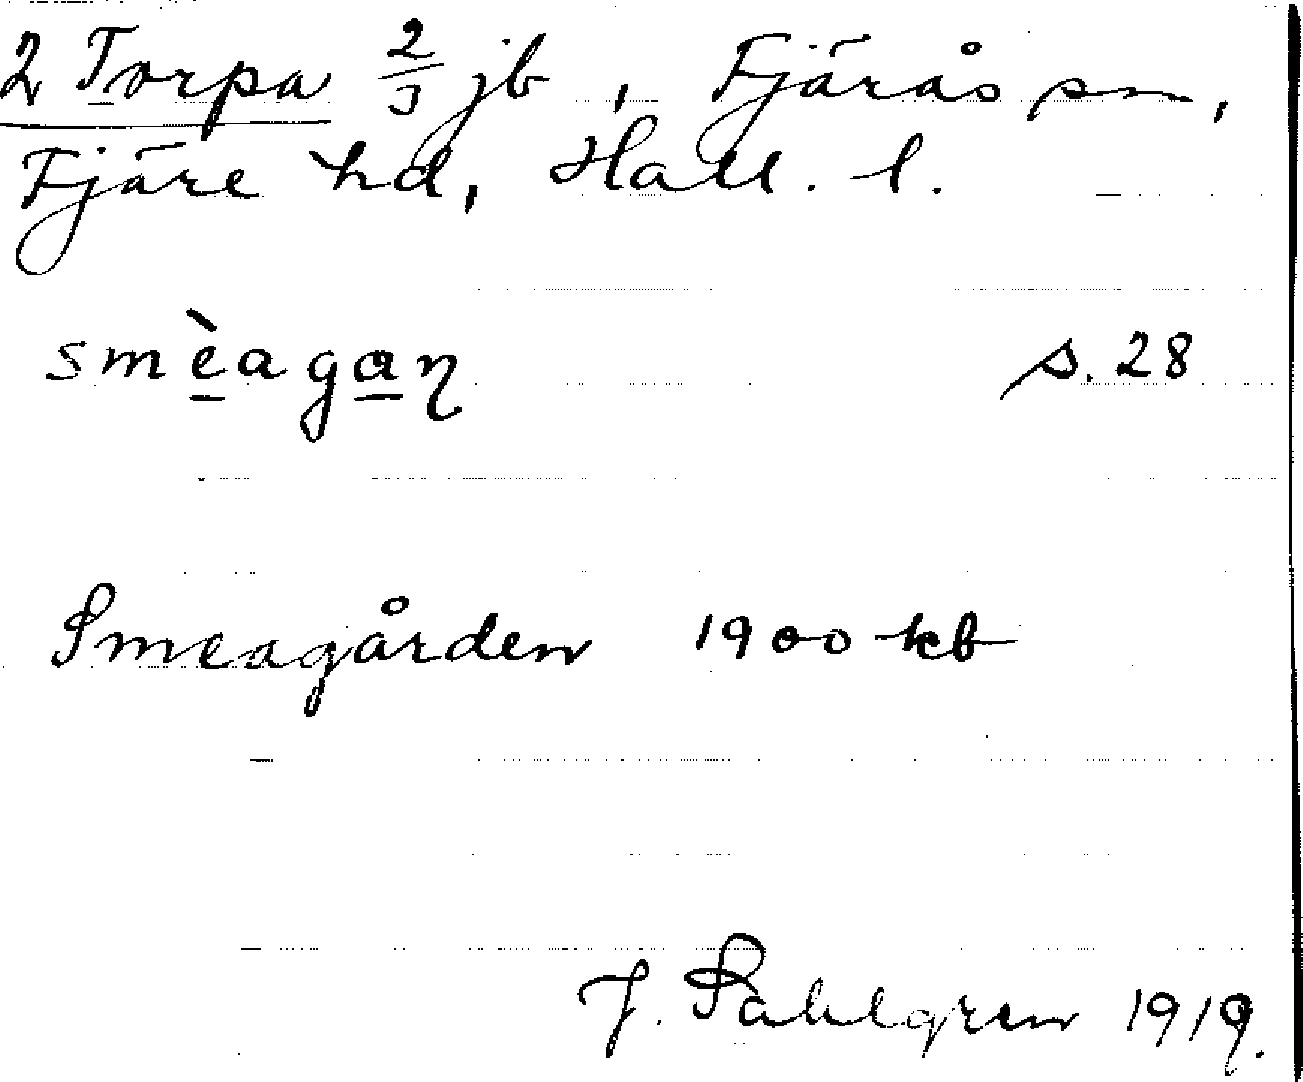 2 Torpa 2/3 jb, Fjärås sn,
Fjäre hd, Hall. l.
smèagaɳ s. 28
Smeagården 1900 kb
J. Sahlgren 1919.